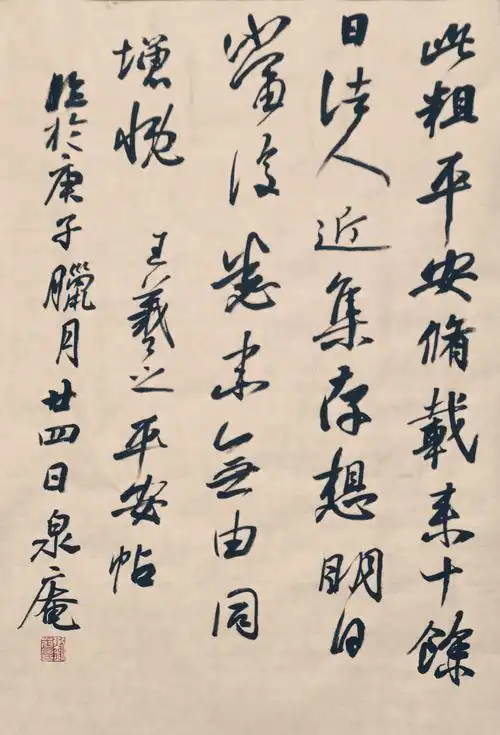 此粗平安脩載来十餘
日諸人近集存想明日
當復悉来無由同
增慨 王羲之平安帖
臨於庚子臘月廿四日泉庵